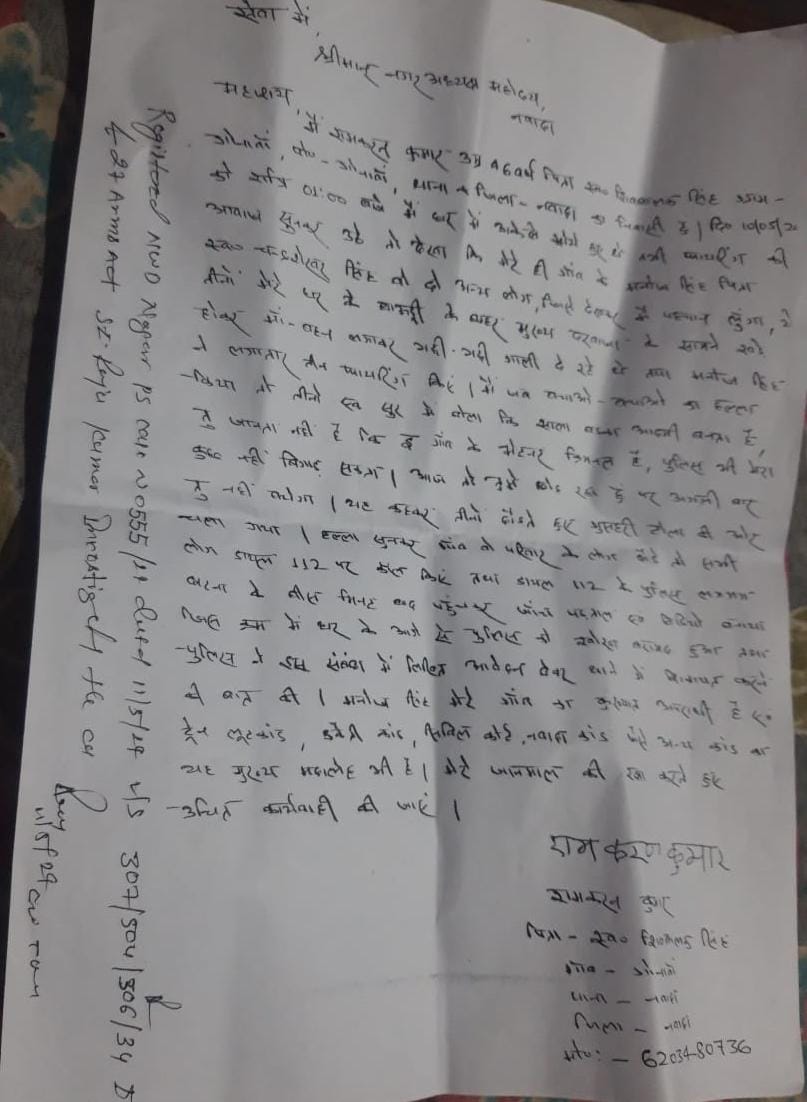 सेवा में,
श्रीमान् नगर अध्यक्ष महोदय,
नवादा
महाशय,
मैं रामकरन कुमार उम्र 46 वर्ष पिता स्व० सिंह ग्राम-
पो०- थाना + जिला - नवादा का निवासी हूँ। दि० 10/05/2
को रात्रि 01:00 बजे मैं घर में सोये हुए थे तभी फायरिंग की
आवाज सुनकर उठे तो देखा कि मेरे ही गाँव के मनोज सिंह पिता
स्व० चन्द्रशेखर सिंह वो दो अन्य लोग, जिसे देखकर मैं पहचान लूंगा, ये
तीनों मेरे घर के के बाहर मुख्य दरवाजा के सामने खड़े
होकर माँ-बहन लगाकर गंदी-गंदी गाली दे रहे थे तथा मनोज सिंह
ने लगातार तीन फायरिंग किए। मैं जब बचाओ-बचाओ का हल्ला
किया तो तीनों एक सुर में बोला कि साला बड़ा आदमी बनता है,
तु जानता नहीं है कि इ गाँव के हैं, पुलिस भी मेरा
कुछ नहीं बिगाड़ सकता। आज तो तुझे छोड़ रहा हूँ पर अगली बार
तु नहीं बचेगा। यह कहकर तीनों दौड़ते हुए मुसहरी टोला की ओर
चला गया। हल्ला सुनकर गाँव वो परिवार के लोग दौड़े तो सभी
लोग डायल 112 पर कॉल किए तथा डायल 112 के पुलिस लगभग
घटना के बीस मिनट बाद पहुँचकर जाँच पड़ताल एवं विडियो बनाया
जिस क्रम में घर के आगे से पुलिस को खोखा बरामद हुआ तथा
पुलिस ने इस संबंध में लिखित आवेदन देकर थाने में शिकायत करने
की बात की। मनोज सिंह मेरे गाँव का कुख्यात अपराधी है एवं
ट्रेन लूटकांड, डकैती कांड, सिविल कोर्ट, नवादा कांड जैसे अन्य कांड का
यह मुख्य भी है। मेरे जानमाल की रक्षा करते हुए
उचित कार्यवाही की जाए।
राम करण कुमार
रामकरन कुमार
पिता - स्व० सिंह
गाँव -
थाना - नवादा
जिला - नवादा
मो०:- 6203480736
Registered NWD Nagar PS case No 555/24 dated 11/5/24 u/s 307/504/506/34
& 27 Arms Act SI. Raju Kumar Investigat the ca
11/5/24